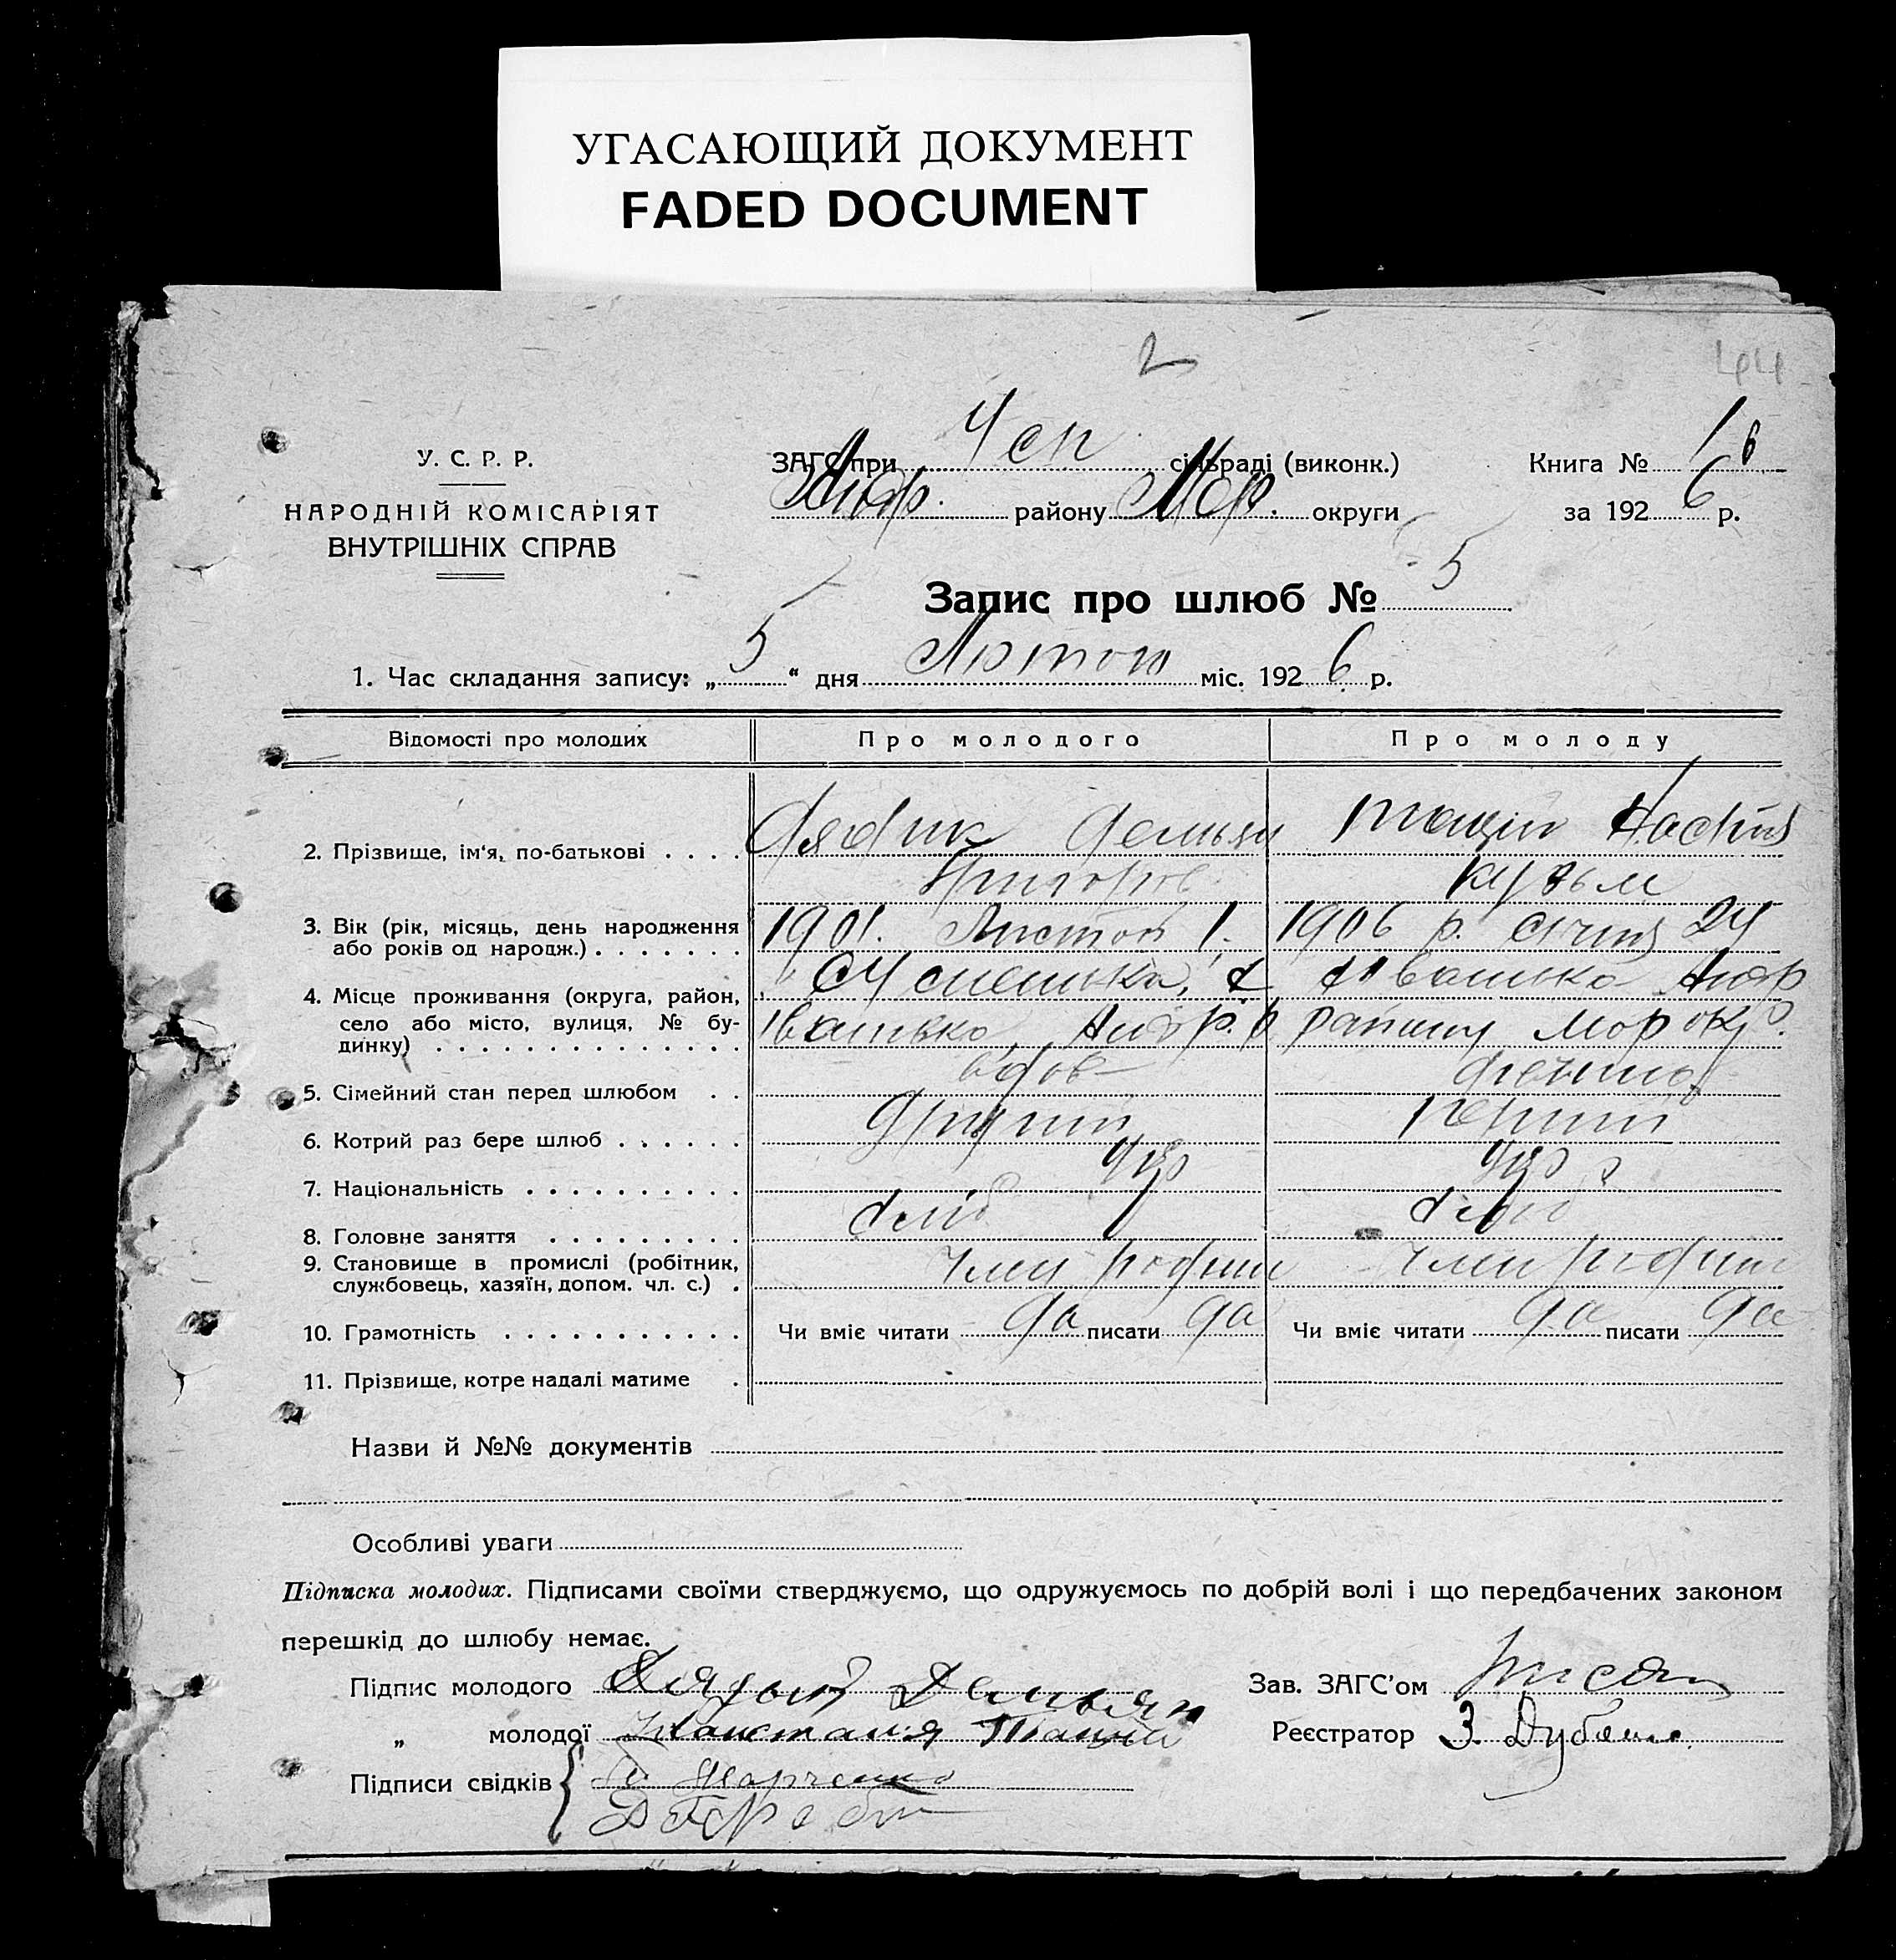 УГАСАЮЩИЙ ДОКУМЕНТ
FADED DOCUMENT
2
44
У. С. Р. Р.
НАРОДНІЙ КОМІСАРІЯТ
ВНУТРІШНІХ СПРАВ
ЗАГС при сільраді (виконк.)
району округи
Книга №
за 1926 р.
Запис про шлюб № 5
1. Час складання запису: „5“ дня Лютого міс. 1926 р.
Відомості про молодих
Про молодого
Про молоду
2. Прізвище, ім‘я, по-батькові . . . .
Дядик Демьян
Григоров
Тацій Настя
Кузьм
3. Вік (рік, місяць, день народження
або років од народж.) . . . . . . .
1901. Листоп 1.
1906 р. Січня 24
4. Місце проживання (округа, район,
село або місто, вулиця, № бу-
динку) . . . . . . . . . . . . . .
Івашько
Івашько
району Мор окр.
5. Сімейний стан перед шлюбом . .
вдов
дівчина
6. Котрий раз бере шлюб . . . . . .
другий
перший
7. Національність . . . . . . . . . .
укр
укр
8. Головне заняття . . . . . . . . .
хліб
хліб
9. Становище в промислі (робітник,
службовець, хазяїн, допом. чл. с.) .
член родини
член родини
10. Грамотність . . . . . . . . . . .
Чи вміє читати да писати да
Чи вміє читати да писати да
11. Прізвище, котре надалі матиме .
Назви й №№ документів
Особливі уваги
Підписка молодих. Підписами своїми стверджуємо, що одружуємось по добрій волі і що передбачених законом
перешкід до шлюбу немає.
Підпис молодого Демьян
„ молодої Тацій
Підписи свідків
Зав. ЗАГС‘ом
Реєстратор З.